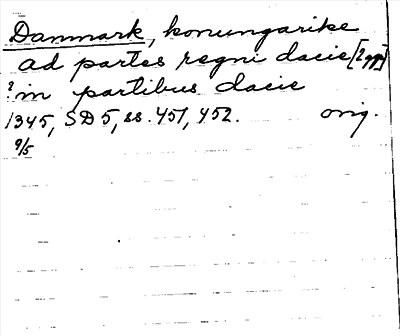 Danmark, konungarike
ad partes regni dacie [2 gg]
? in partibus dacie
1345, SD 5, ss. 451, 452. orig.
9/5